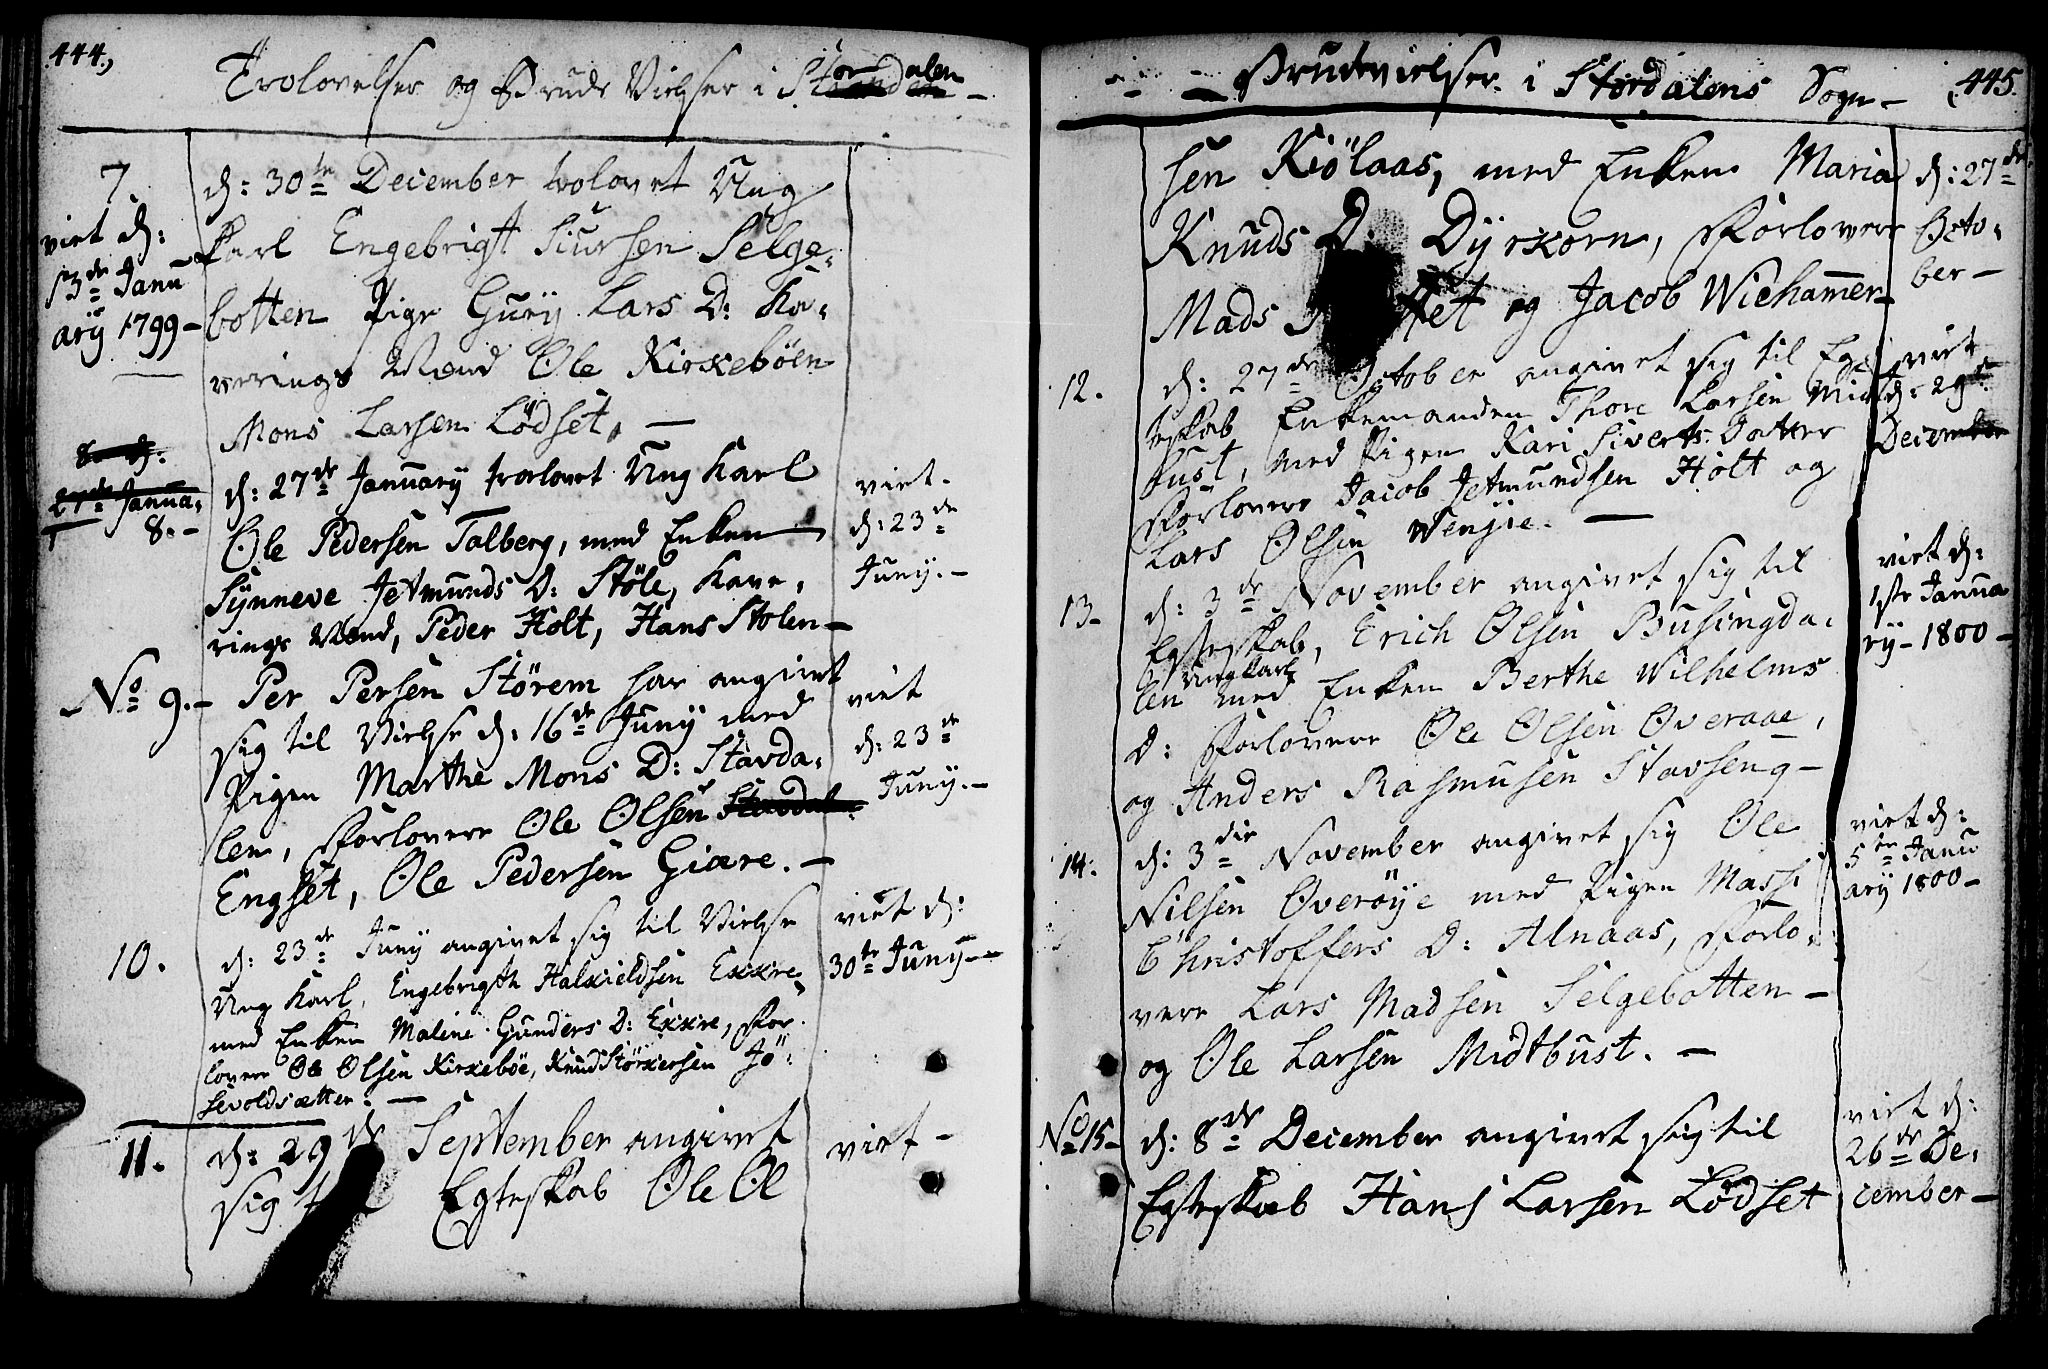 444,
Trolovelser og Brude Vielser i Stordalen
7.
viet d:
13de Janu
ary 1799-
d: 30te December trolovet Ung
Karl Engebrigt Siursen Selge,
botten Pige Gury Lars D: Ka,
verings Mænd Ole Kirkebøen
Mons Larsen Lödset. -
8. d:
27de Janua,
8.-
d: 27de January trolovet Ung Karl
Ole Pedersen Talberg, med Enken
Synneve Jetmunds D: Stöle, Kave,
rings Mænd, Peder Holt, Hans Stolen-
viet.
d: 23de
Juny.-
No 9.- Per Persen Störem har angivet
sig til Vielse d: 16de Juny med
Pigen Marthe Mons D: Stavda,
len, Forlovere Ole Olsen Stavdal
Engset, Ole Pedersen Giære. -
viet
d: 23de
Juny.-
10.
d: 23de Juny angivet sig til Vielse
Ung Karl, Engebrigth Halkieldsen Exkre
med Enken Maline Gunders D: Exkre, For
lovere Ole Olsen Kirkeböe, Knud Störkersen Jö:
sevoldsætter. -
viet d:
30te Juny-
11.
d: 29de September angivet
sig til Egteskab Ole Ol
viet -
Brudevielser i Stordalens Sogn- 445.
sen Kiölaas, med Enken Maria
Knuds D: Dÿrkorn, Forlovere
Mads og Jacob Wiehamer-
d: 27de
Octo,
ber-
12.
d: 27de October angivet sig til Eg,
teskab Enkemanden Thore Larsen Mid
bust, med Pigen Kari Siverts Datter
Forlovere Jacob Jetmundsen Holt og
Lars Olsen Wenjie. -
viet
d: 29de
December
13-
d: 3de November angivet sig til
Egteskab, Erich Olsen Busingda,
Ungkarl
len med Enken Berthe Wilhelms
D: Forlovere Ole Olsen Overaae,
og Anders Rasmusen Stavseng-
viet d:
1ste Janua
ry- 1800-
14.
d: 3die November angivet sig Ole
Nilsen Overöÿe med Pigen Massi
Christoffers D: Alnaas, Forlo,
vere Lars Madsen Selgebotten-
og Ole Larsen Midtbust. -
viet d:
5te Janu
ary 1800-
No 15-
d: 8de December angivet sig til
Egteskab Hans Larsen Lödset
viet d:
26de De,
cember-